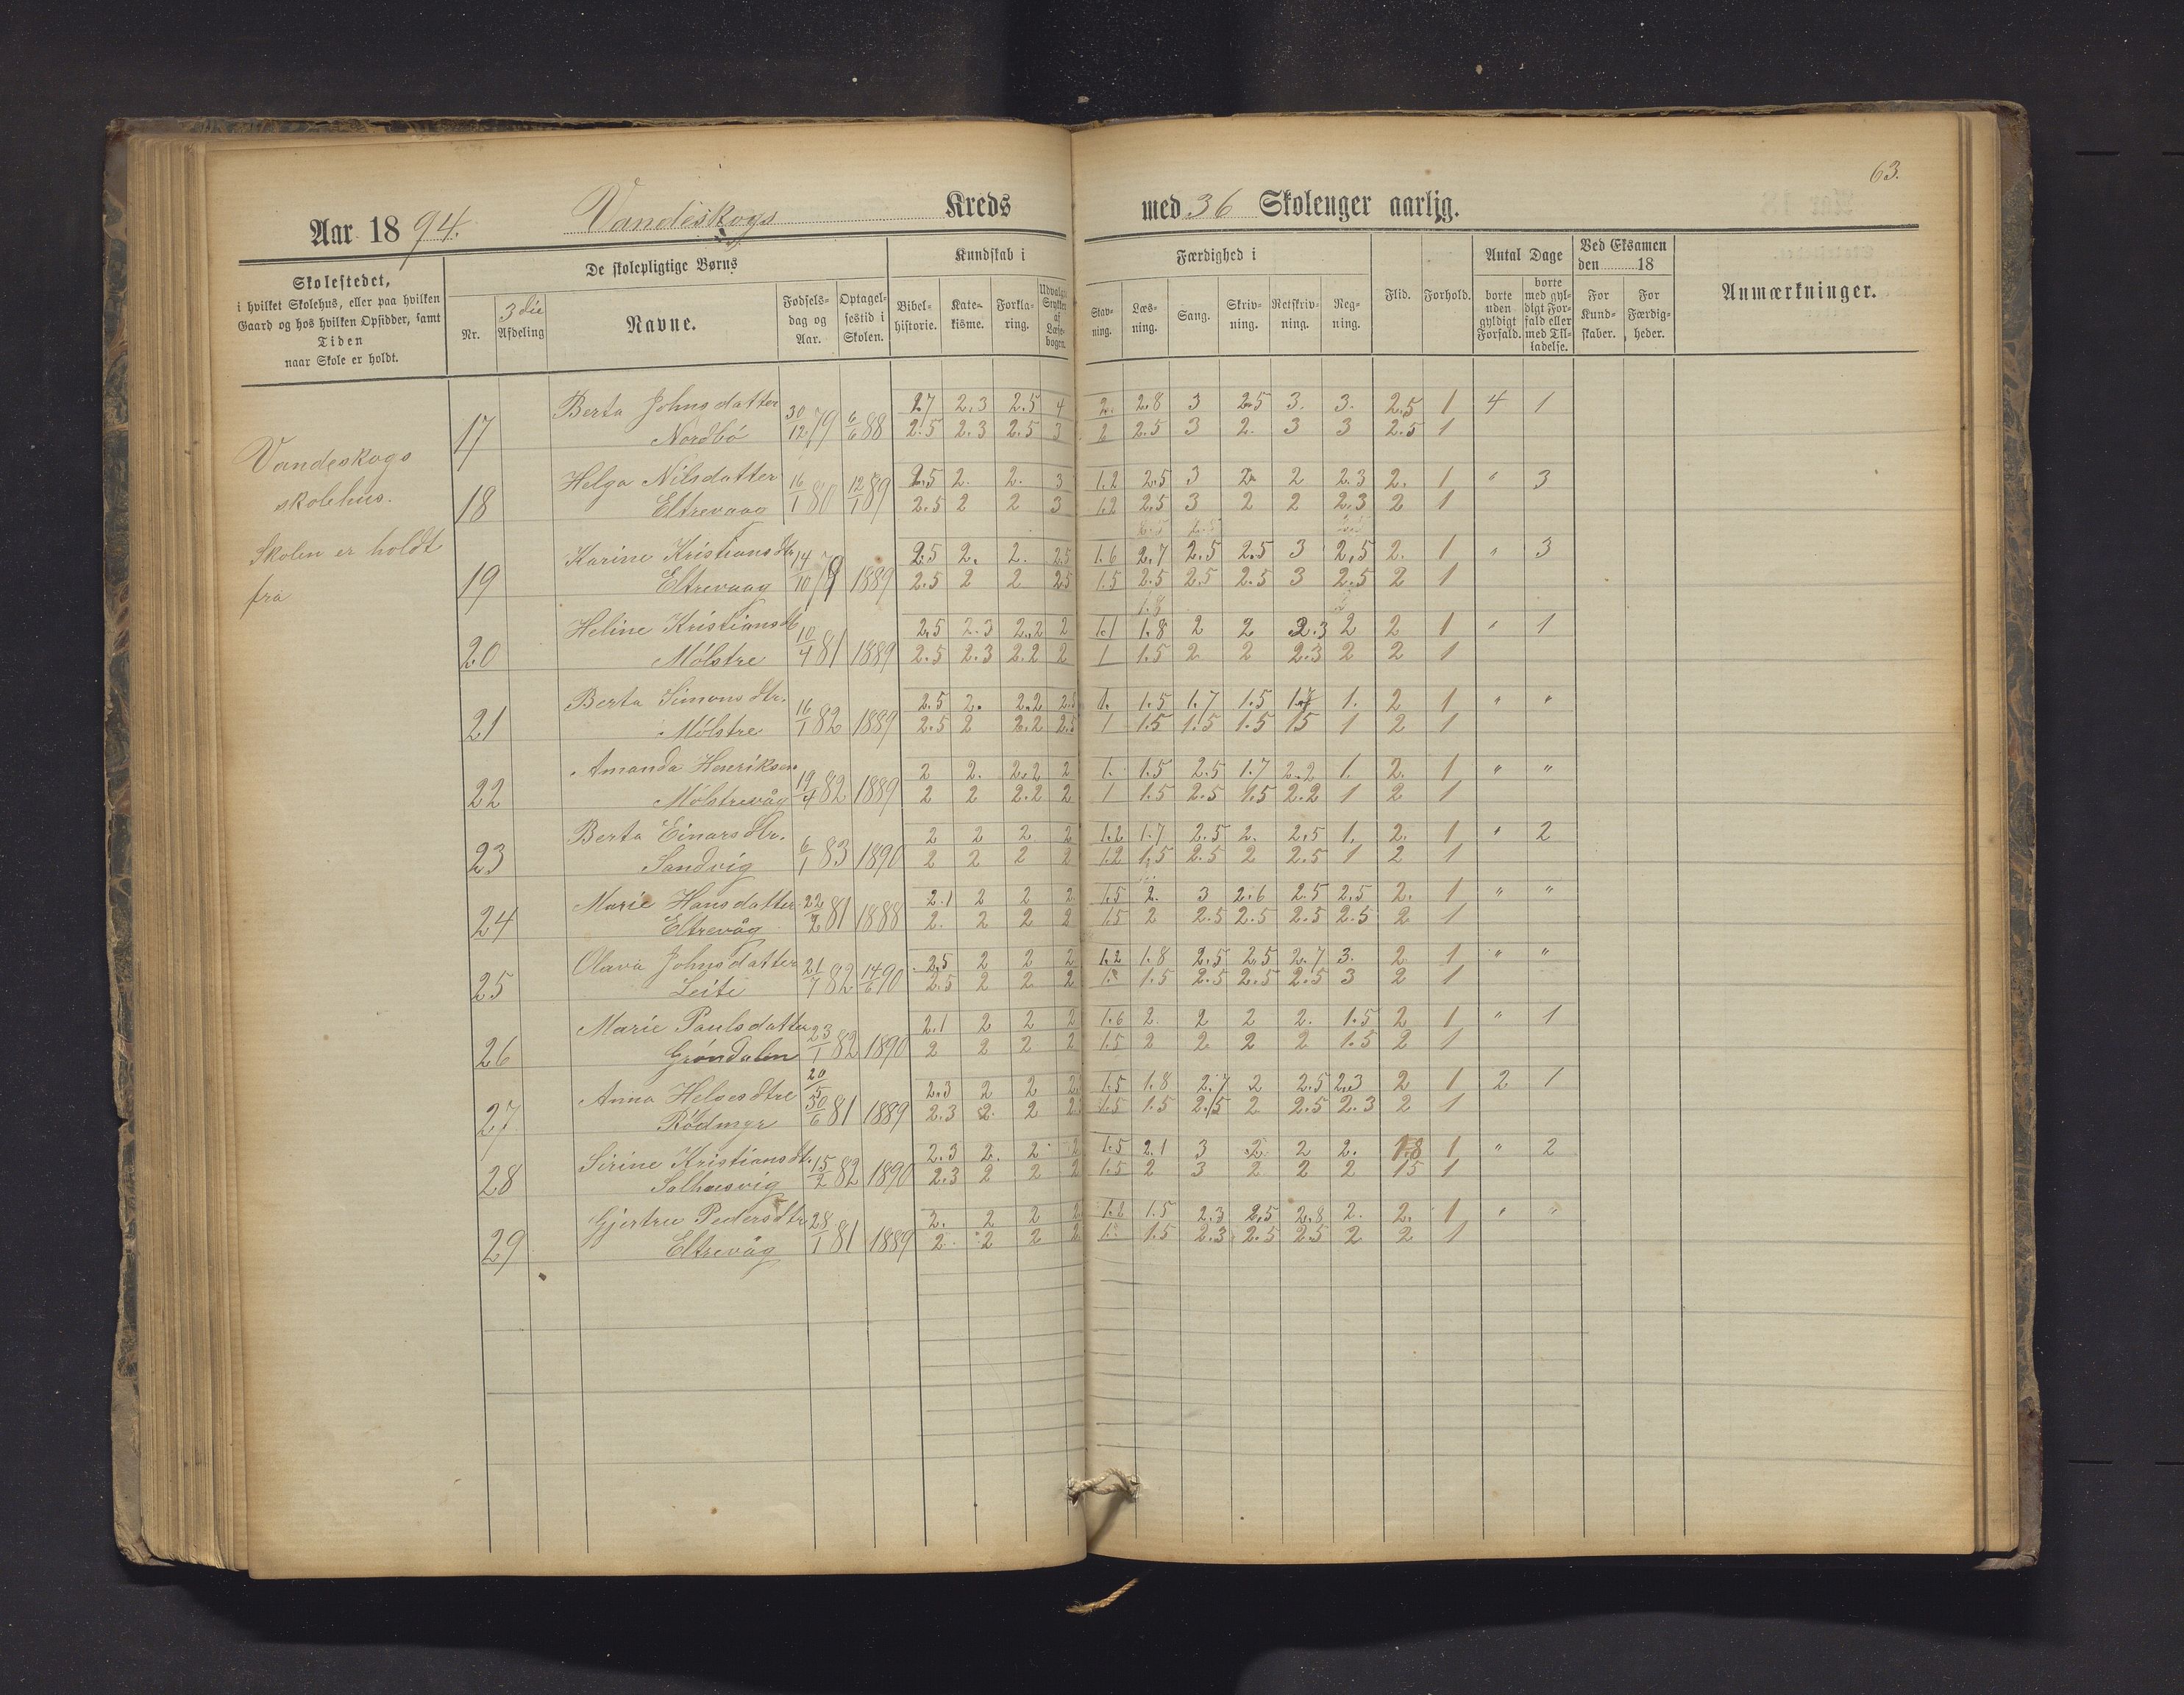 63.
Aar 1894. Vandeskogs Kreds med 36 Skoleuger aarlig.
Skolestedet,
i hvilket Skolehus, eller paa hvilken
Gaard og hos hvilken Opsidder, samt
Tiden
naar Skole er holdt.
De skolepligtige Børns
Nr.
3die Afdeling
Navne.
Fødselsdag og Aar.
Optagelsestid i Skolen.
Kundskab i
Bibelhistorie.
Katekisme.
Forklaring.
Udvalgte Stykker af Læsebogen.
Færdighed i
Stavning.
Læsning.
Sang.
Skrivning.
Retskrivning.
Regning.
Flid.
Forhold.
Antal Dage
borte uden gyldigt Forfald.
borte med gyldigt Forfald eller med Tilladelse.
Ved Eksamen den 18
For Kundskaber.
For Færdigheder.
Anmærkninger.
Vandeskogs
skolehus.
Skolen er holdt
fra
17 Berta Johnsdatter 30/12 79 6/6 88 2.7 2.3 2.5 4 2. 2.8 3 2.5 3. 3. 2.5 1 4 1
Nordbö 2.5 2.3 2.5 3 2 2.5 3 2. 3 3 2.5 1
18 Helga Nilsdatter 16/1 80 12/1 89 2.5 2. 2. 3 1.2 2.5 3 2. 2 2.3 2. 1 " 3
Eltrevaag 2.5 2 2 3 1.2 2.5 3 2 2 2.3 2 1
19 Karine Kristiansdtr 14/10 79 1889 2.5 2. 2. 2.5 1.6 2.7 2.5 2.5 3 2.5 2. 1 " 3
Eltrevaag 2.5 2 2 2.5 1.5 2.5 2.5 2.5 3 2.5 2 1
20 Heline Kristiansdt 10/4 81 1889 2.5 2.3 2.2 2 1.1 1.8 2 2 2.3 2 2 1 " 1
Mölstre 2.5 2.3 2.2 2 1 1.5 2 2 2.3 2 2 1
21 Berta Simonsdtr. 16/1 82 1889 2.5 2. 2.2 2.5 1. 1.5 1.7 1.5 1.7 1. 2 1 " "
Mölstre 2.5 2 2.2 2.5 1 1.5 1.5 1.5 15 1 2 1
22 Amanda Henriksen 19/4 82 1889 2 2. 2.2 2 1. 1.5 2.5 1.7 2.2 1. 2. 1 " "
Mölstrevåg 2 2 2.2 2 1 1.5 2.5 1.5 2.2 1 2 1
23 Berta Einarsdtr. 6/1 83 1890 2 2 2 2 1.2 1.7 2.5 2. 2.5 1. 2. 1 " 2
Sandvig 2 2 2 2 1.2 1.5 2.5 2 2.5 1 2 1
24 Marie Hansdatter 22/2 81 1888 2.1 2 2 2 1.5 2. 3 2.6 2.5 2.5 2. 1 " "
Eltrevåg 2. 2 2 2 1.5 2 2.5 2.5 2.5 2.5 2 1
25 Olava Johnsdatter 21/7 82 14/6 90 2.5 2 2 2 1.2 1.8 2.5 2.5 2.7 3. 2 1 " "
Leite 2.5 2 2 2 1.5 2.5 2.5 2.5 3 2 1
26 Marie Paulsdatter 23/1 82 1890 2.1 2 2 2 1.6 2. 2 2 2. 1.5 2 1 " 1
Gröndalen 2 2 2 2 1.5 2 2 2 2 1.5 2 1
27 Anna Helgesdtre 20/5 30/6 81 1889 2.3 2 2 2 1.5 1.8 2.7 2 2.5 2.3 2 1 2 1
Rödmyr 2.3 2. 2 2 1.5 1.5 2.5 2 2.5 2.3 2 1
28 Sirine Kristiansdt. 15/2 82 1890 2.3 2. 2 2 1.5 2.1 3 2 2 2. 1.8 1 " 2
Salhusvig 2.3 2 2 2 1.5 2 3 2 2 2 15 1
29 Gjertru Pedersdtr 28/1 81 1889 2. 2 2 2 1.2 1.5 2.3 2.5 2.8 2. 2. 1 " "
Eltrevåg 2. 2 2 2 1.5 2.3 2.5 2.5 2 2 1